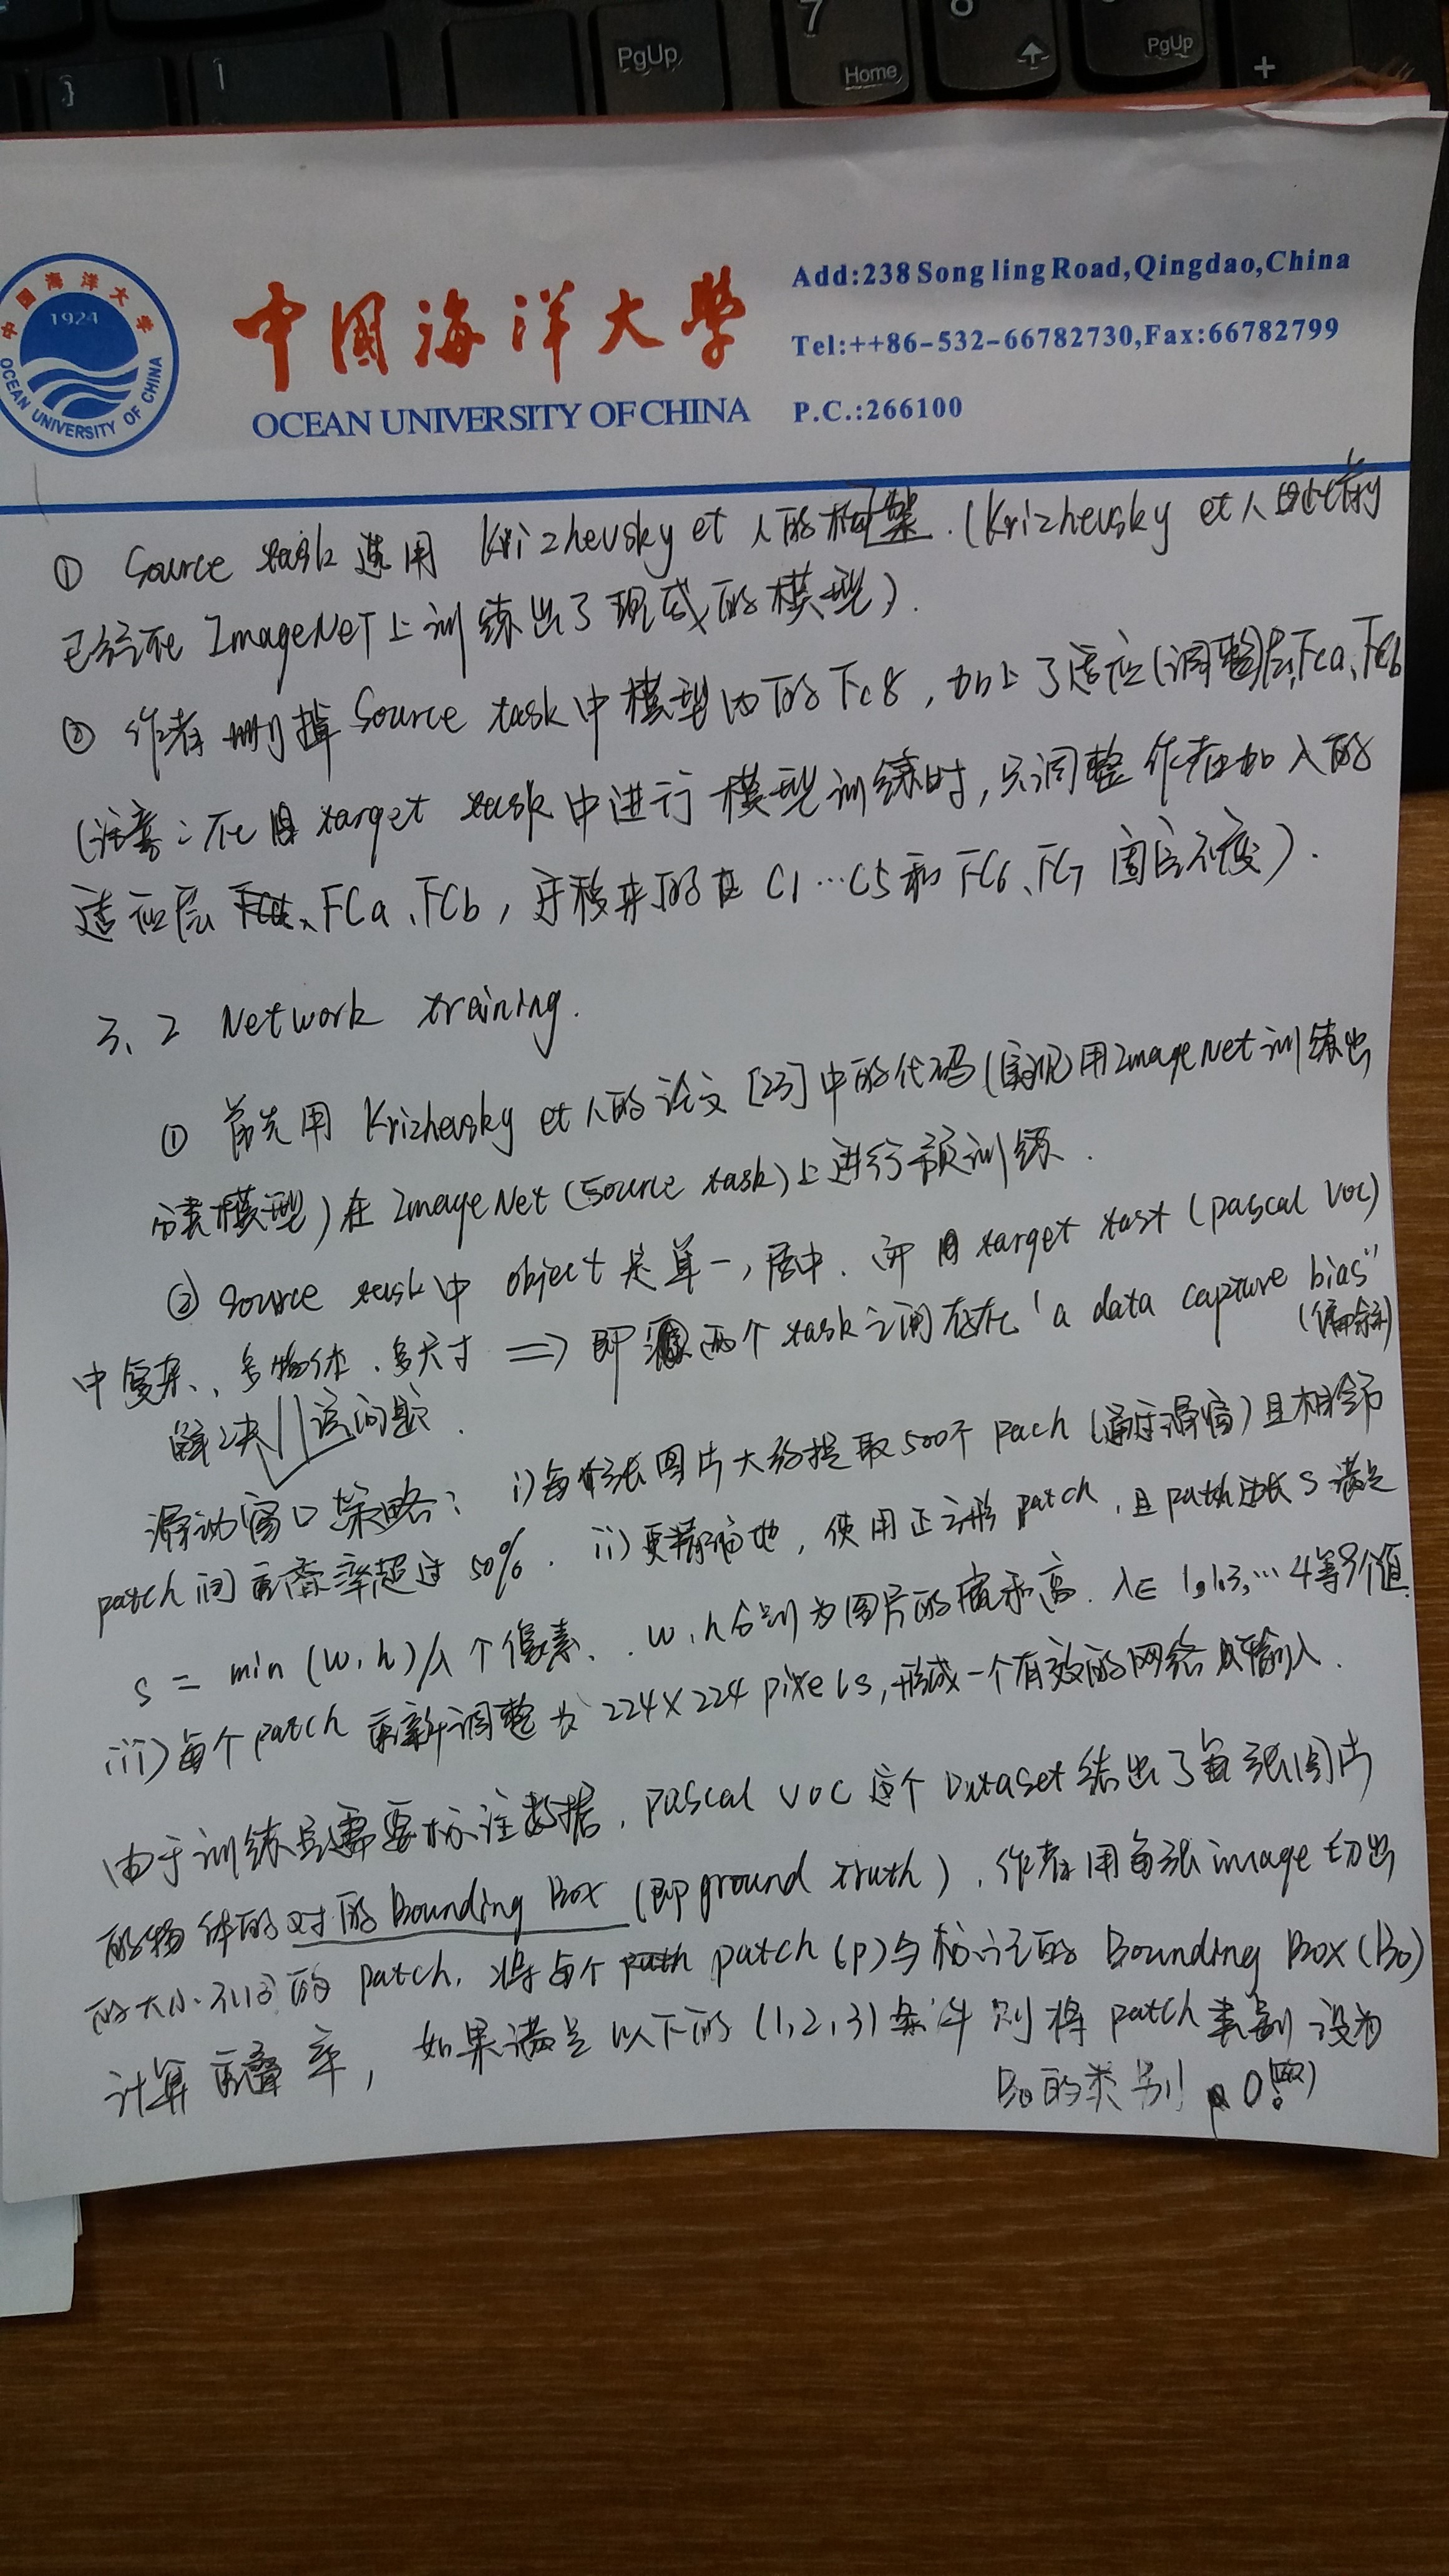 }
|
PgUp
7
Home
8
PgUp
+
中国海洋大学
1924
OCEAN UNIVERSITY OF CHINA
中國海洋大學
OCEAN UNIVERSITY OF CHINA
Add:238 Song ling Road,Qingdao,China
Tel:++86-532-66782730,Fax:66782799
P.C.:266100
① Source task 选用 Krizhevsky et 人的框架.(Krizhevsky et 人
已经在 ImageNeT上训练出了现成的模型).
② 作者删掉 Source task中模型的 Fc8,加上了适应(调整)层,Fca、Fcb
(注意:在 target task中进行模型训练时,只调整作者加入的
适应层 FCa、FCb,迁移来的 C1…C5和FC6、FC7 固定不变).
3、2 Network training.
① 首先用 Krizhevsky et 人的论文 [23]中的代码(实现用ImageNet训练出
分类模型)在 ImageNet(Source task)上进行预训练.
② Source task中 object是单一,居中.而 target tast(pascal VOC)
中复杂、多物体、多尺寸 => 即 两个 task之间存在"a data capture bias"
(偏斜)
解决 该问题.
滑动窗口策略: i)每张图片大约提取500个 pach(通过滑窗)且相邻
patch间重叠率超过 50%. ii) 更精确地,使用正方形 patch,且 patch边长 S 满足
s = min (w,h)/λ 个像素. w,h分别为图片的宽和高. λ∈ 1,1.3,…4等8个值.
iii)每个 patch 重新调整为 224×224 pixels,形成一个有效的网络输入.
由于训练是需要标注数据,pascal VOC 这个 Dataset 给出了每张图片
的物体的对的 Bounding Box (即ground truth),作者用每张image切出
的大小不同的 patch,将每个 patch(p)与标记的 Bounding Box(Bo)
计算重叠率,如果满足以下的 (1,2,3)条件则将 patch类别设为
Bo的类别